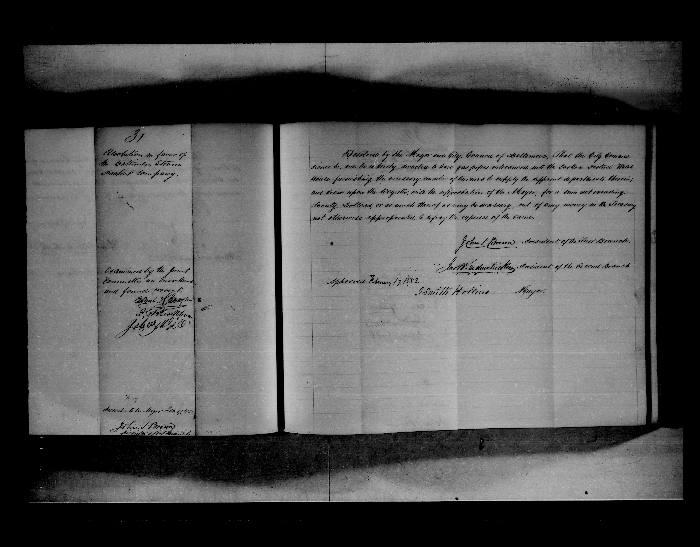 31
Resolution in favor of
the Baltimore Steam
Packet Company.
Examined by the Joint
Committee on Enrolled
and found correct
John S. Brown
Resolved by the Mayor and City Council of Baltimore, That the City Commis
sioner be, and he is hereby, directed to have gas pipes introduced into the Eastern District Watch
House, furnishing the necessary number of burners to supply the different departments therein;
and draw upon the Register, with the approbation of the Mayor, for a sum not exceeding
Seventy Dollars, or so much thereof as may be necessary, out of any money in the Treasury
not otherwise appropriated, to defray the expense of the same.
John S. Brown, President of the First Branch.
President of the Second Branch
Approved February 17, 1852
J. Smith Hollins Mayor.